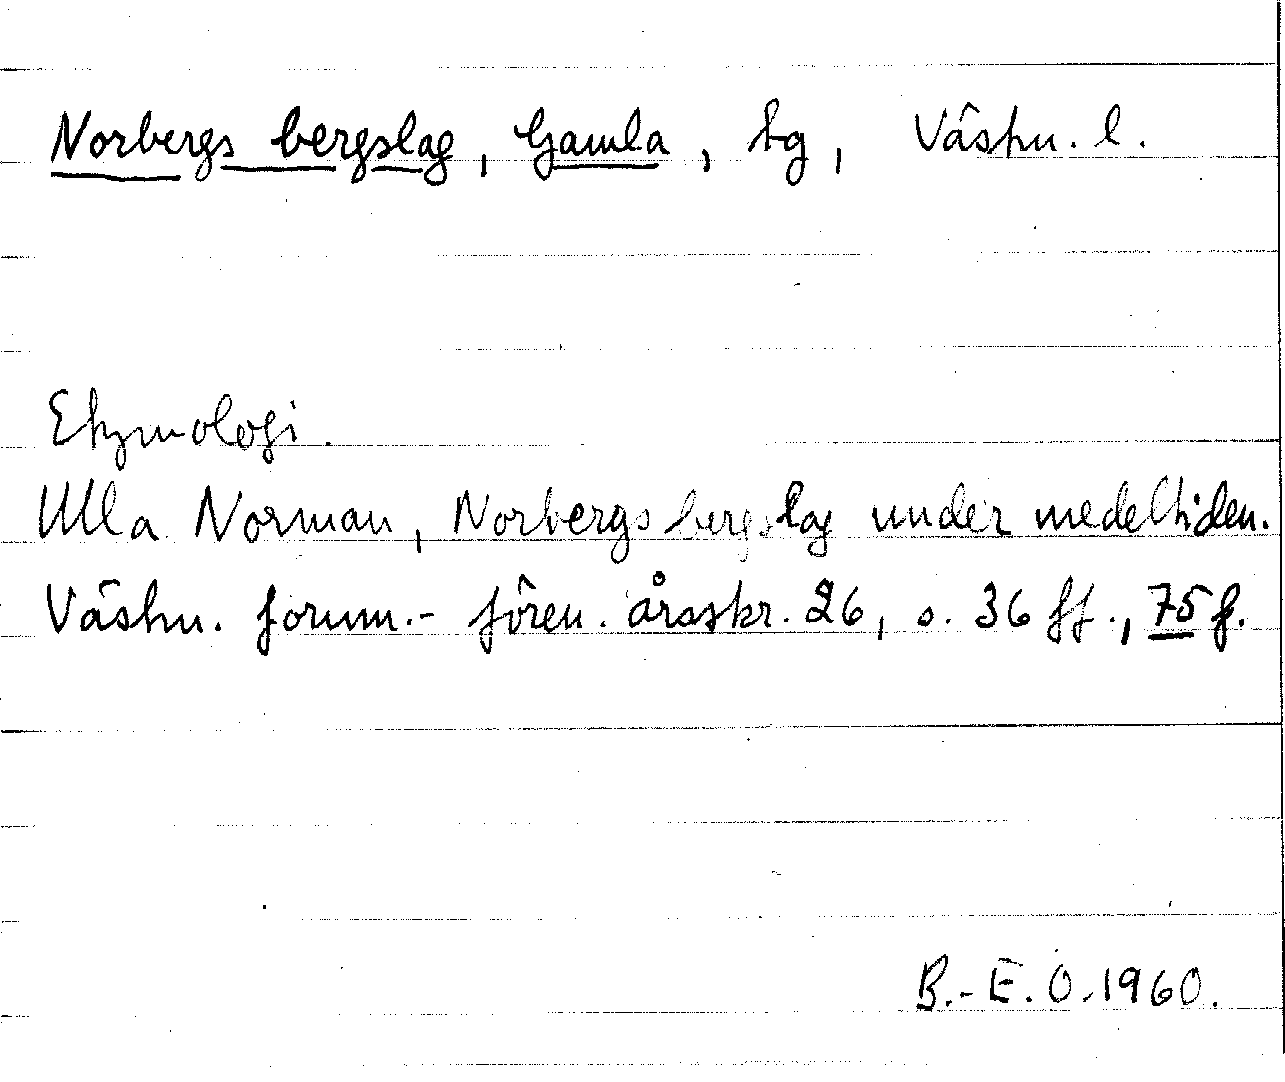 Norbergs bergslag, Gamla, bg, Västm. l.
Etymologi.
Ulla Norman, Norbergs bergslag under medeltiden.
Västm. fornm.- fören. årsskr. 26, s. 36 ff., 75 f.
B.-E. Ö. 1960.